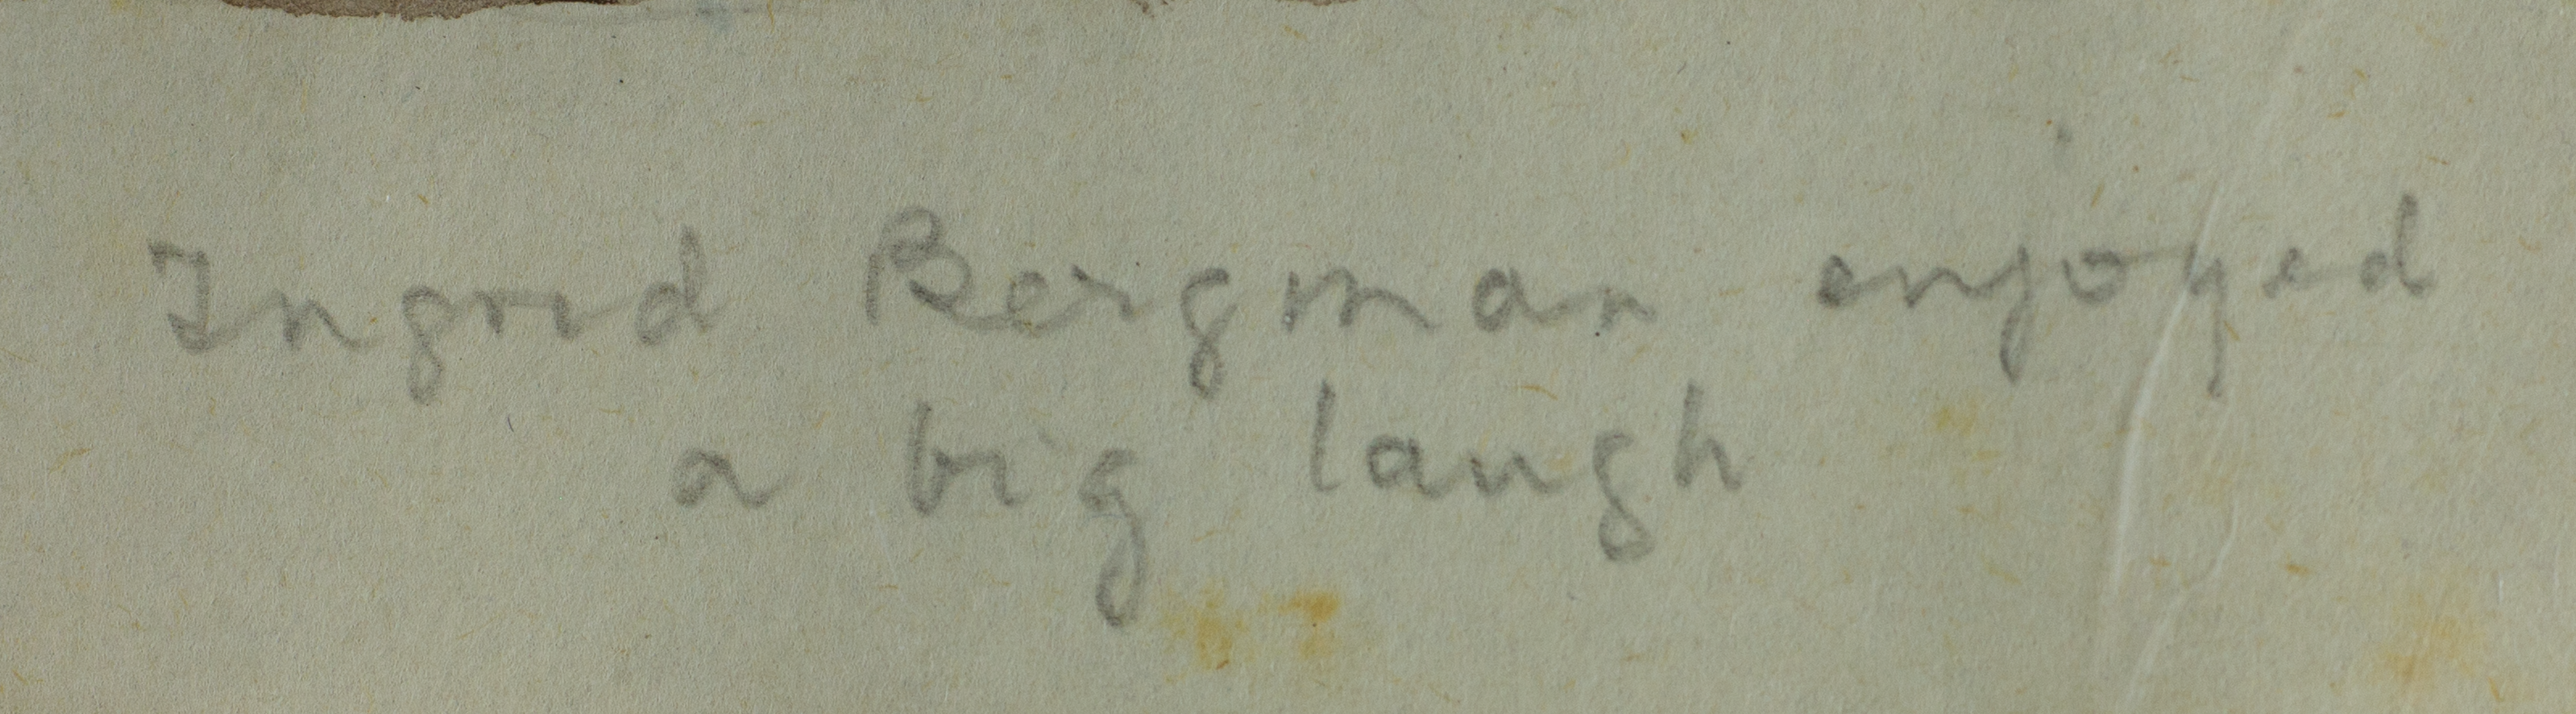 Ingrid Bergman enjoyed
a big laugh